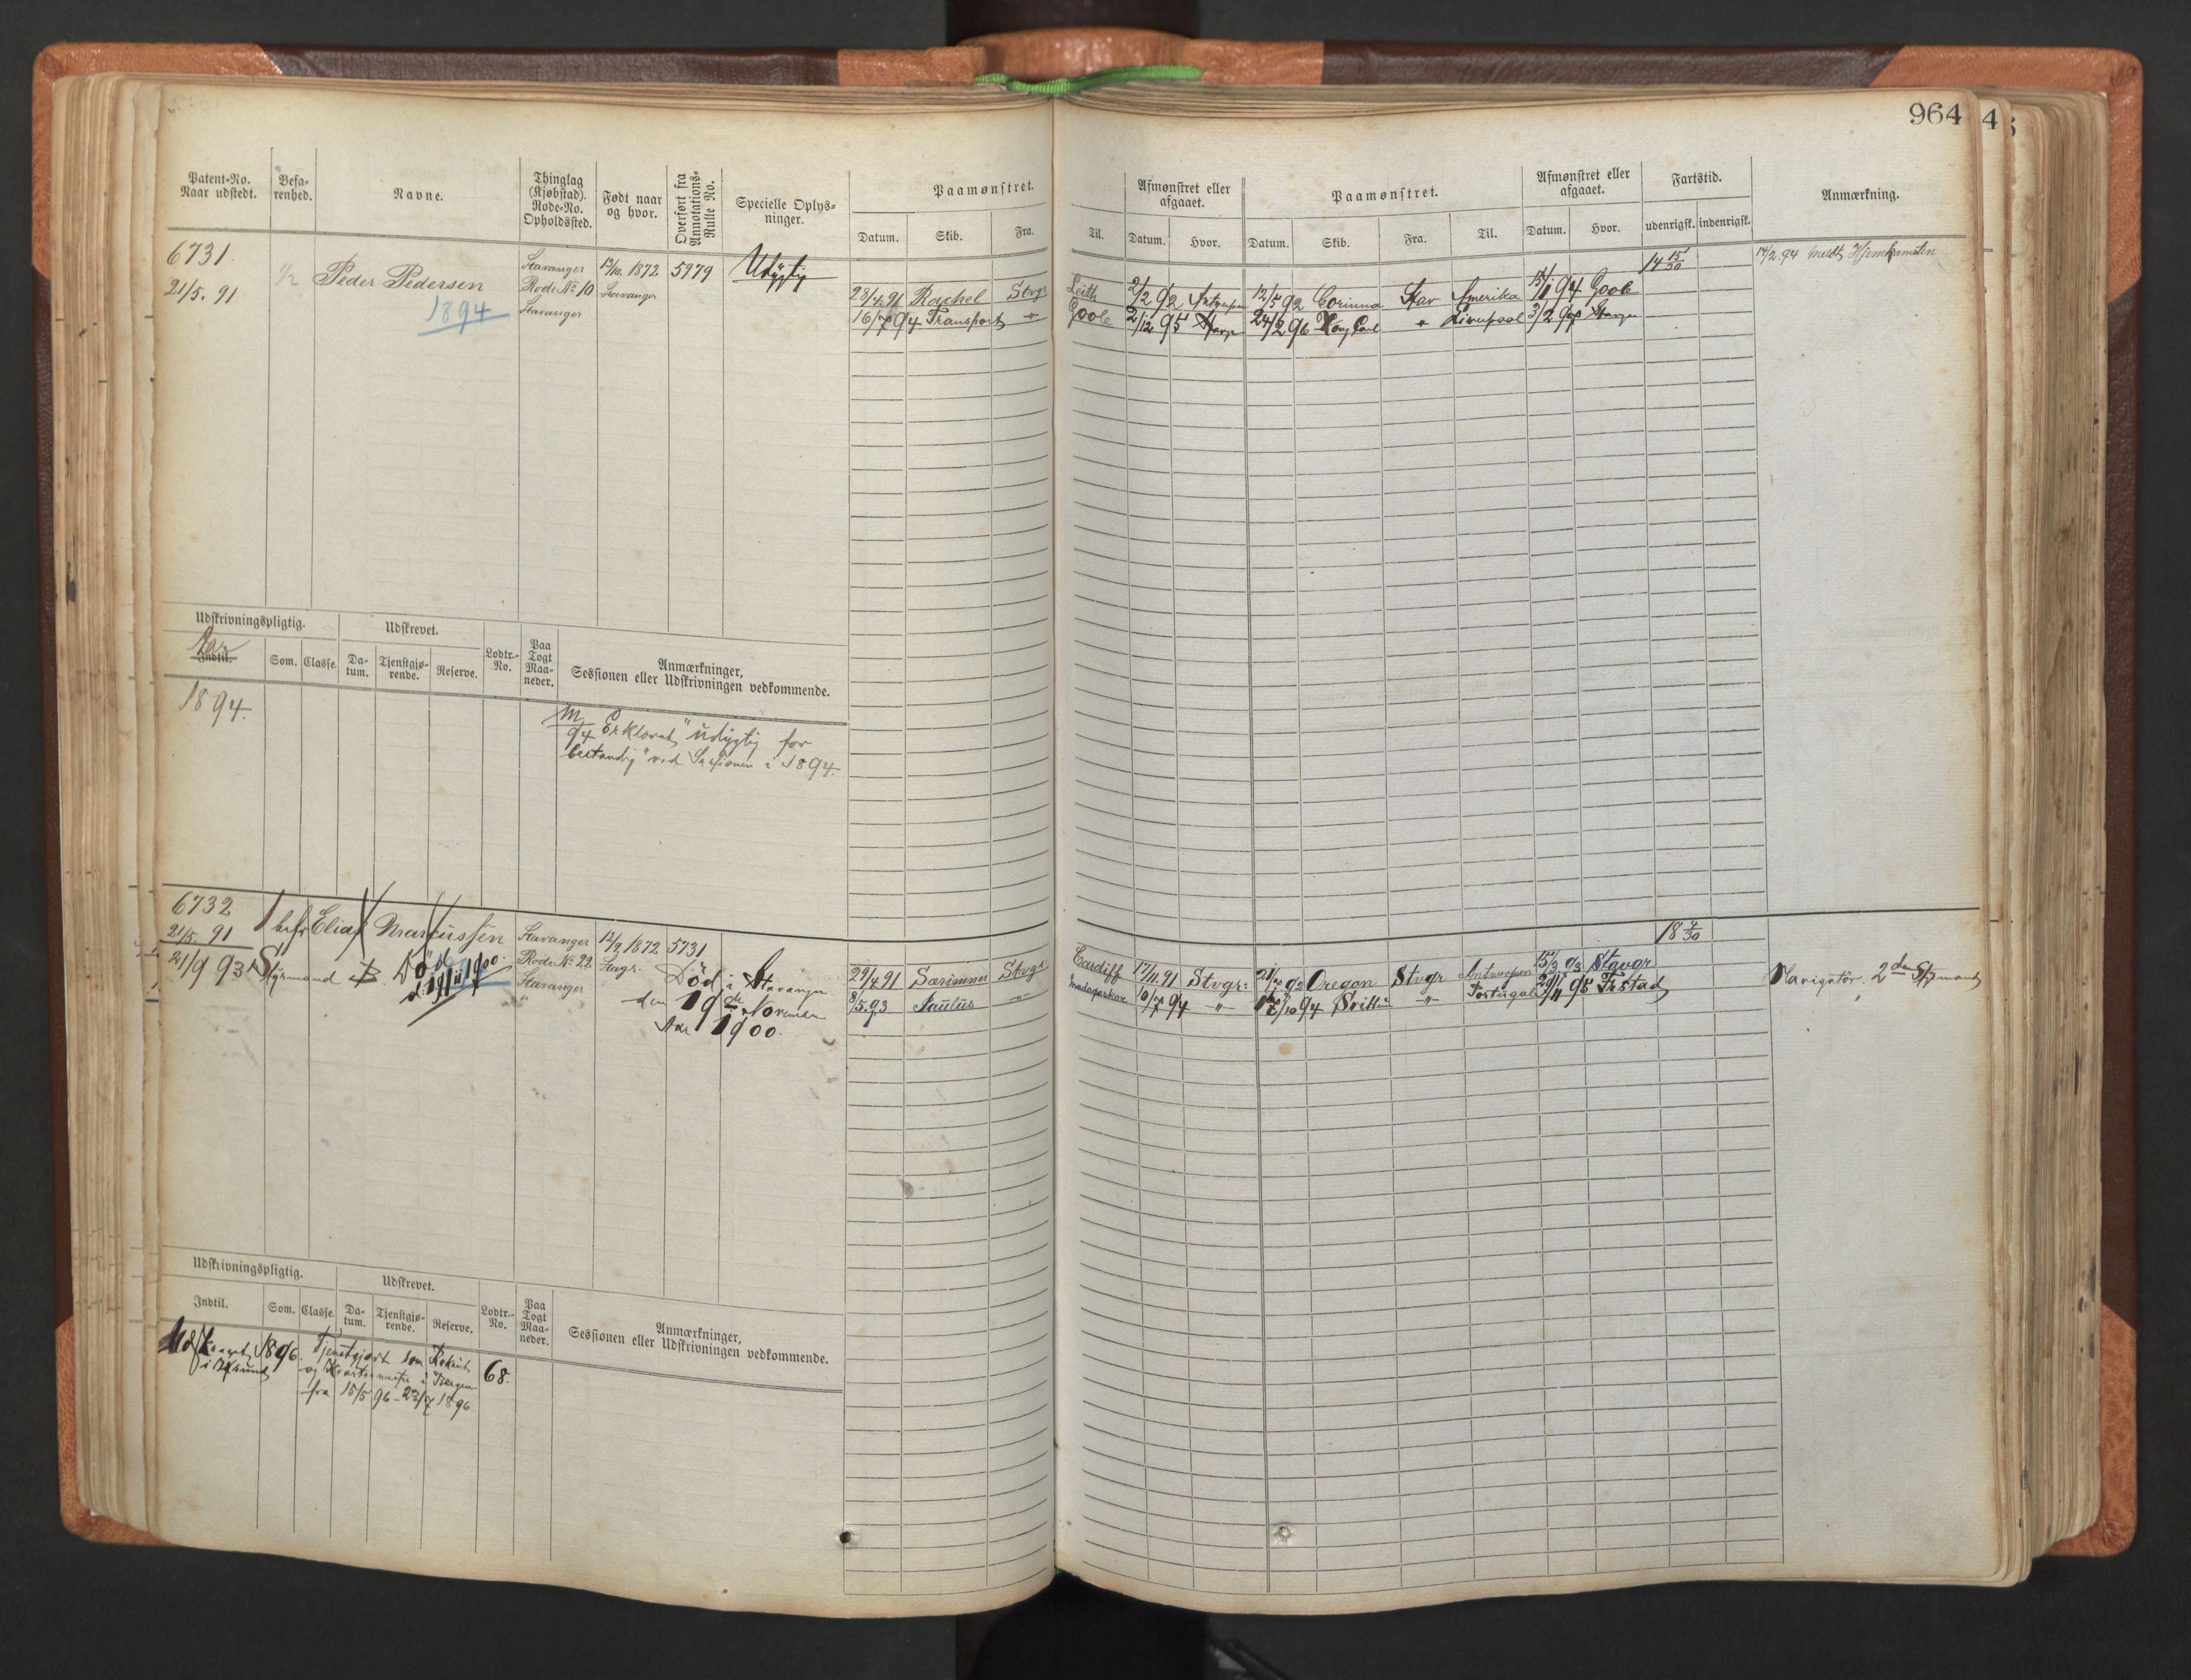 964
Patent-No. Naar udstedt.
Befa-renhed.
Navne.
Thinglag (Kjøbstad). Rode-No. Opholdssted.
Født naar og hvor.
Overført fra Annotations-Rulle No.
Specielle Oplys-ninger.
Paamønstret.
Datum. Skib. Fra. Til.
Afmønstret eller afgaaet.
Datum. Hvor.
Paamønstret.
Datum. Skib. Fra. Til.
Afmønstret eller afgaaet.
Datum. Hvor.
Fartstid.
udenrigsk. indenrigsk.
Anmærkning.
6731
21/5. 91
1/2
Peder Pedersen
1894
Stavanger
Rode No 10
Stavanger
1872
Stavanger
5979
Udygtig
23/4.91 Rachel Stvgr Leith 2/2 92 Antwerpen 12/5 92 Corinna Stav Amerika 94 Goole
16/7 94 Transport -"- Goole 2/12 95 24/2 96 Kong Carl " Liverpool 3/2
14 15/30
14/2.94 meldt Hjemkomsten
Udskrivningspligtig.
Udskrevet.
Aar
Indtil.
Som. Classe. Da-tum. Tjenstgjø-rende. Reserve.
Lodtr.-No.
Paa Togt Maa-neder.
Anmærkninger, Sessionen eller Udskrivningen vedkommende.
1894.
94 Erklæret "udygtig for
bestandig" ved Sessionen i 1894.
6732
21/5. 91
21/9 93
1 bef
Elias Marcussen
Styrmand
Död
d. 19/11 1900.
Stavanger
Rode No 22
Stavanger
12/9 1872
Stvgr.
5731
Död i Stavanger
den 19de November
Aar 1900.
29/4 91 Særimner Stvgr Cardiff 17/11.91 Stvgr: 21/7 92 Oregon Stvgr Antwerpen 15/3 93 Stavgr
8/5.93 Paulus -"- Madagaskar 10/7 94 -"- 94 -"- Portugal 95 Frstad
18 4/30
Navigatör. 2den Styrmand
Udskrivningspligtig.
Udskrevet.
Indtil.
Som. Classe. Da-tum. Tjenstgjø-rende. Reserve.
Lodtr.-No.
Paa Togt Maa-neder.
Anmærkninger, Sessionen eller Udskrivningen vedkommende.
Udskrevet 1896. Tjenstgjort som Rekrut
og i Bergen
fra 15/5 96 - 23/7 1896.
68.